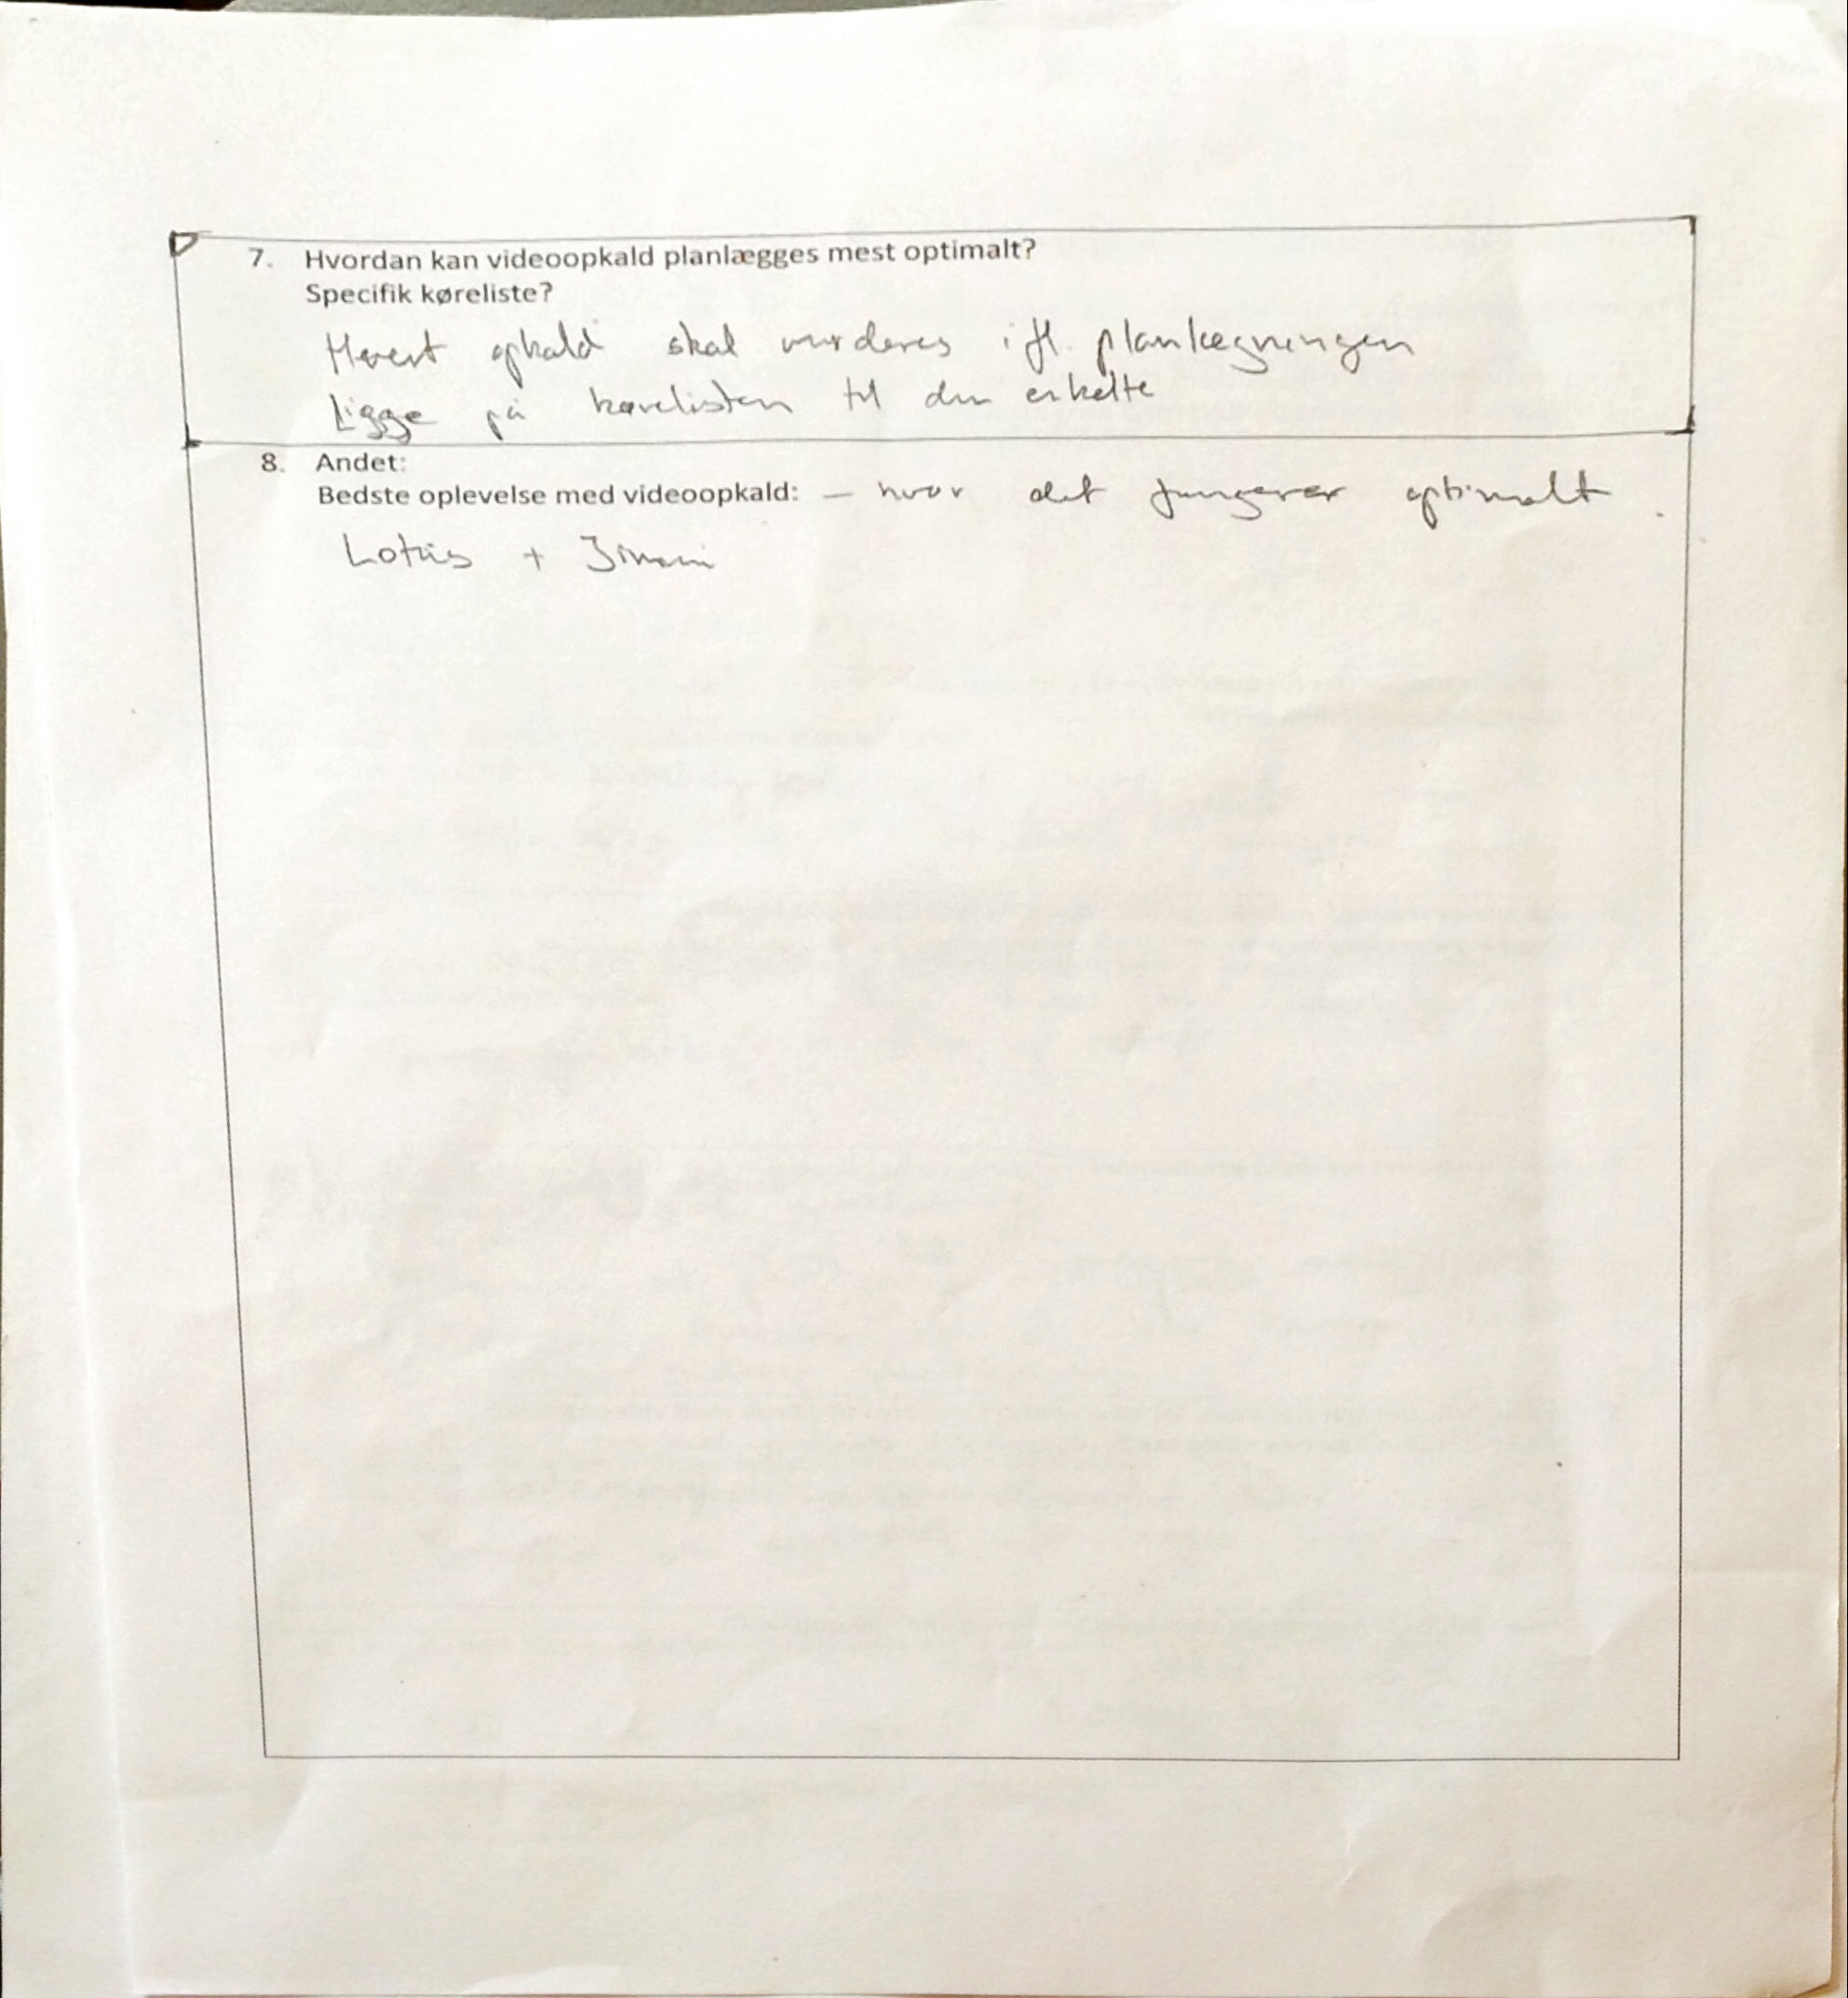 7. Hvordan kan videoopkald planlægges mest optimalt?
Specifik køreliste?
Hvert opkald skal vurderes ifl. planlægningen
Ligge på kørelisten til den enkelte
8. Andet:
Bedste oplevelse med videoopkald: – hvor det fungerer optimalt.
+